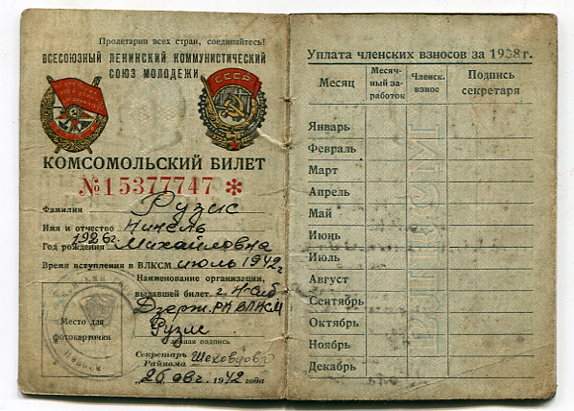 Пролетарии всех стран, соединяйтесь!
ВСЕСОЮЗНЫЙ ЛЕНИНСКИЙ КОММУНИСТИЧЕСКИЙ
СОЮЗ МОЛОДЕЖИ
СССР
КОМСОМОЛЬСКИЙ БИЛЕТ
№15377747 *
Фамилия Рузис
Имя и отчество Нинель
Год рождения 1926г. Михайловна
Время вступления в ВЛКСМ июль 1942г
Наименование организации,
выдавшей билет г. Н-Сиб
Дзерж. РК ВЛКСМ
Место для
фотокарточки
Рузис
Личная подпись
Секретарь
Райкома
"26" авг. 1942 года
Уплата членских взносов за 1938 г.
Месяц
Месяч-
ный за-
работок
Членск.
взнос
Подпись
секретаря
Январь
Февраль
Март
Апрель
Май
Июнь
Июль
Август
Сентябрь
Октябрь
Ноябрь
Декабрь